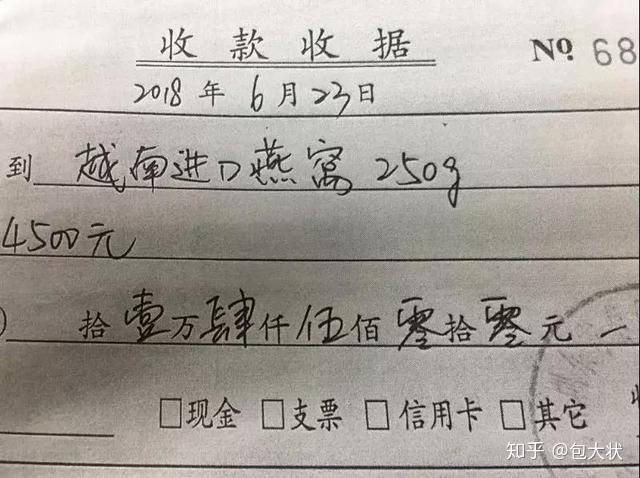 收款收据 Nº 68
2018年6月23日
到 越南进口燕窝 250g
4500元
拾壹万肆仟伍佰零拾零元
□现金 □支票 □信用卡 □其它
知乎 @包大状